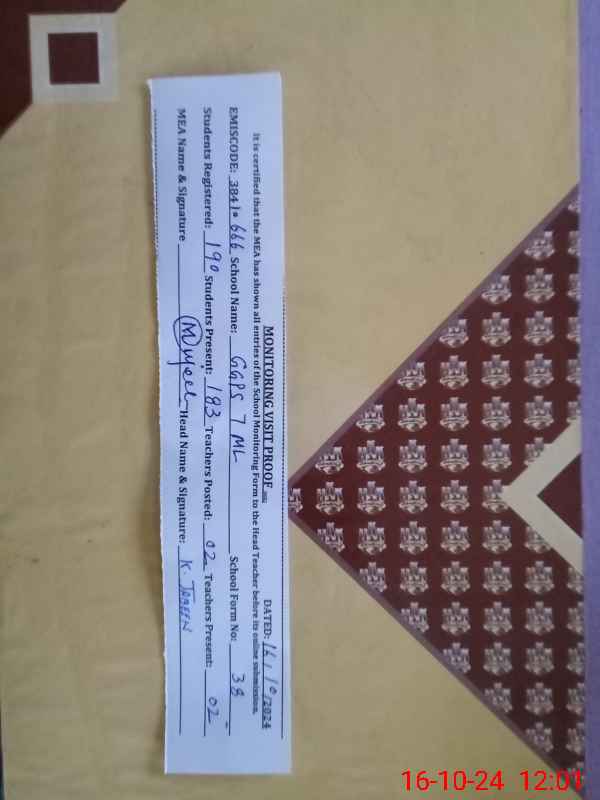 MONITORING VISIT PROOF
DATED: 16/10/2024
It is certified that the MEA has shown all entries of the School Monitoring Form to the Head Teacher before its online submission.
EMISCODE: 38410666 School Name: GGPS 7 ML School Form No: 38
Students Registered: 190 Students Present: 183 Teachers Posted: 02 Teachers Present: 02
MEA Name & Signature Head Name & Signature: K. JABEEN
16-10-24 12:01